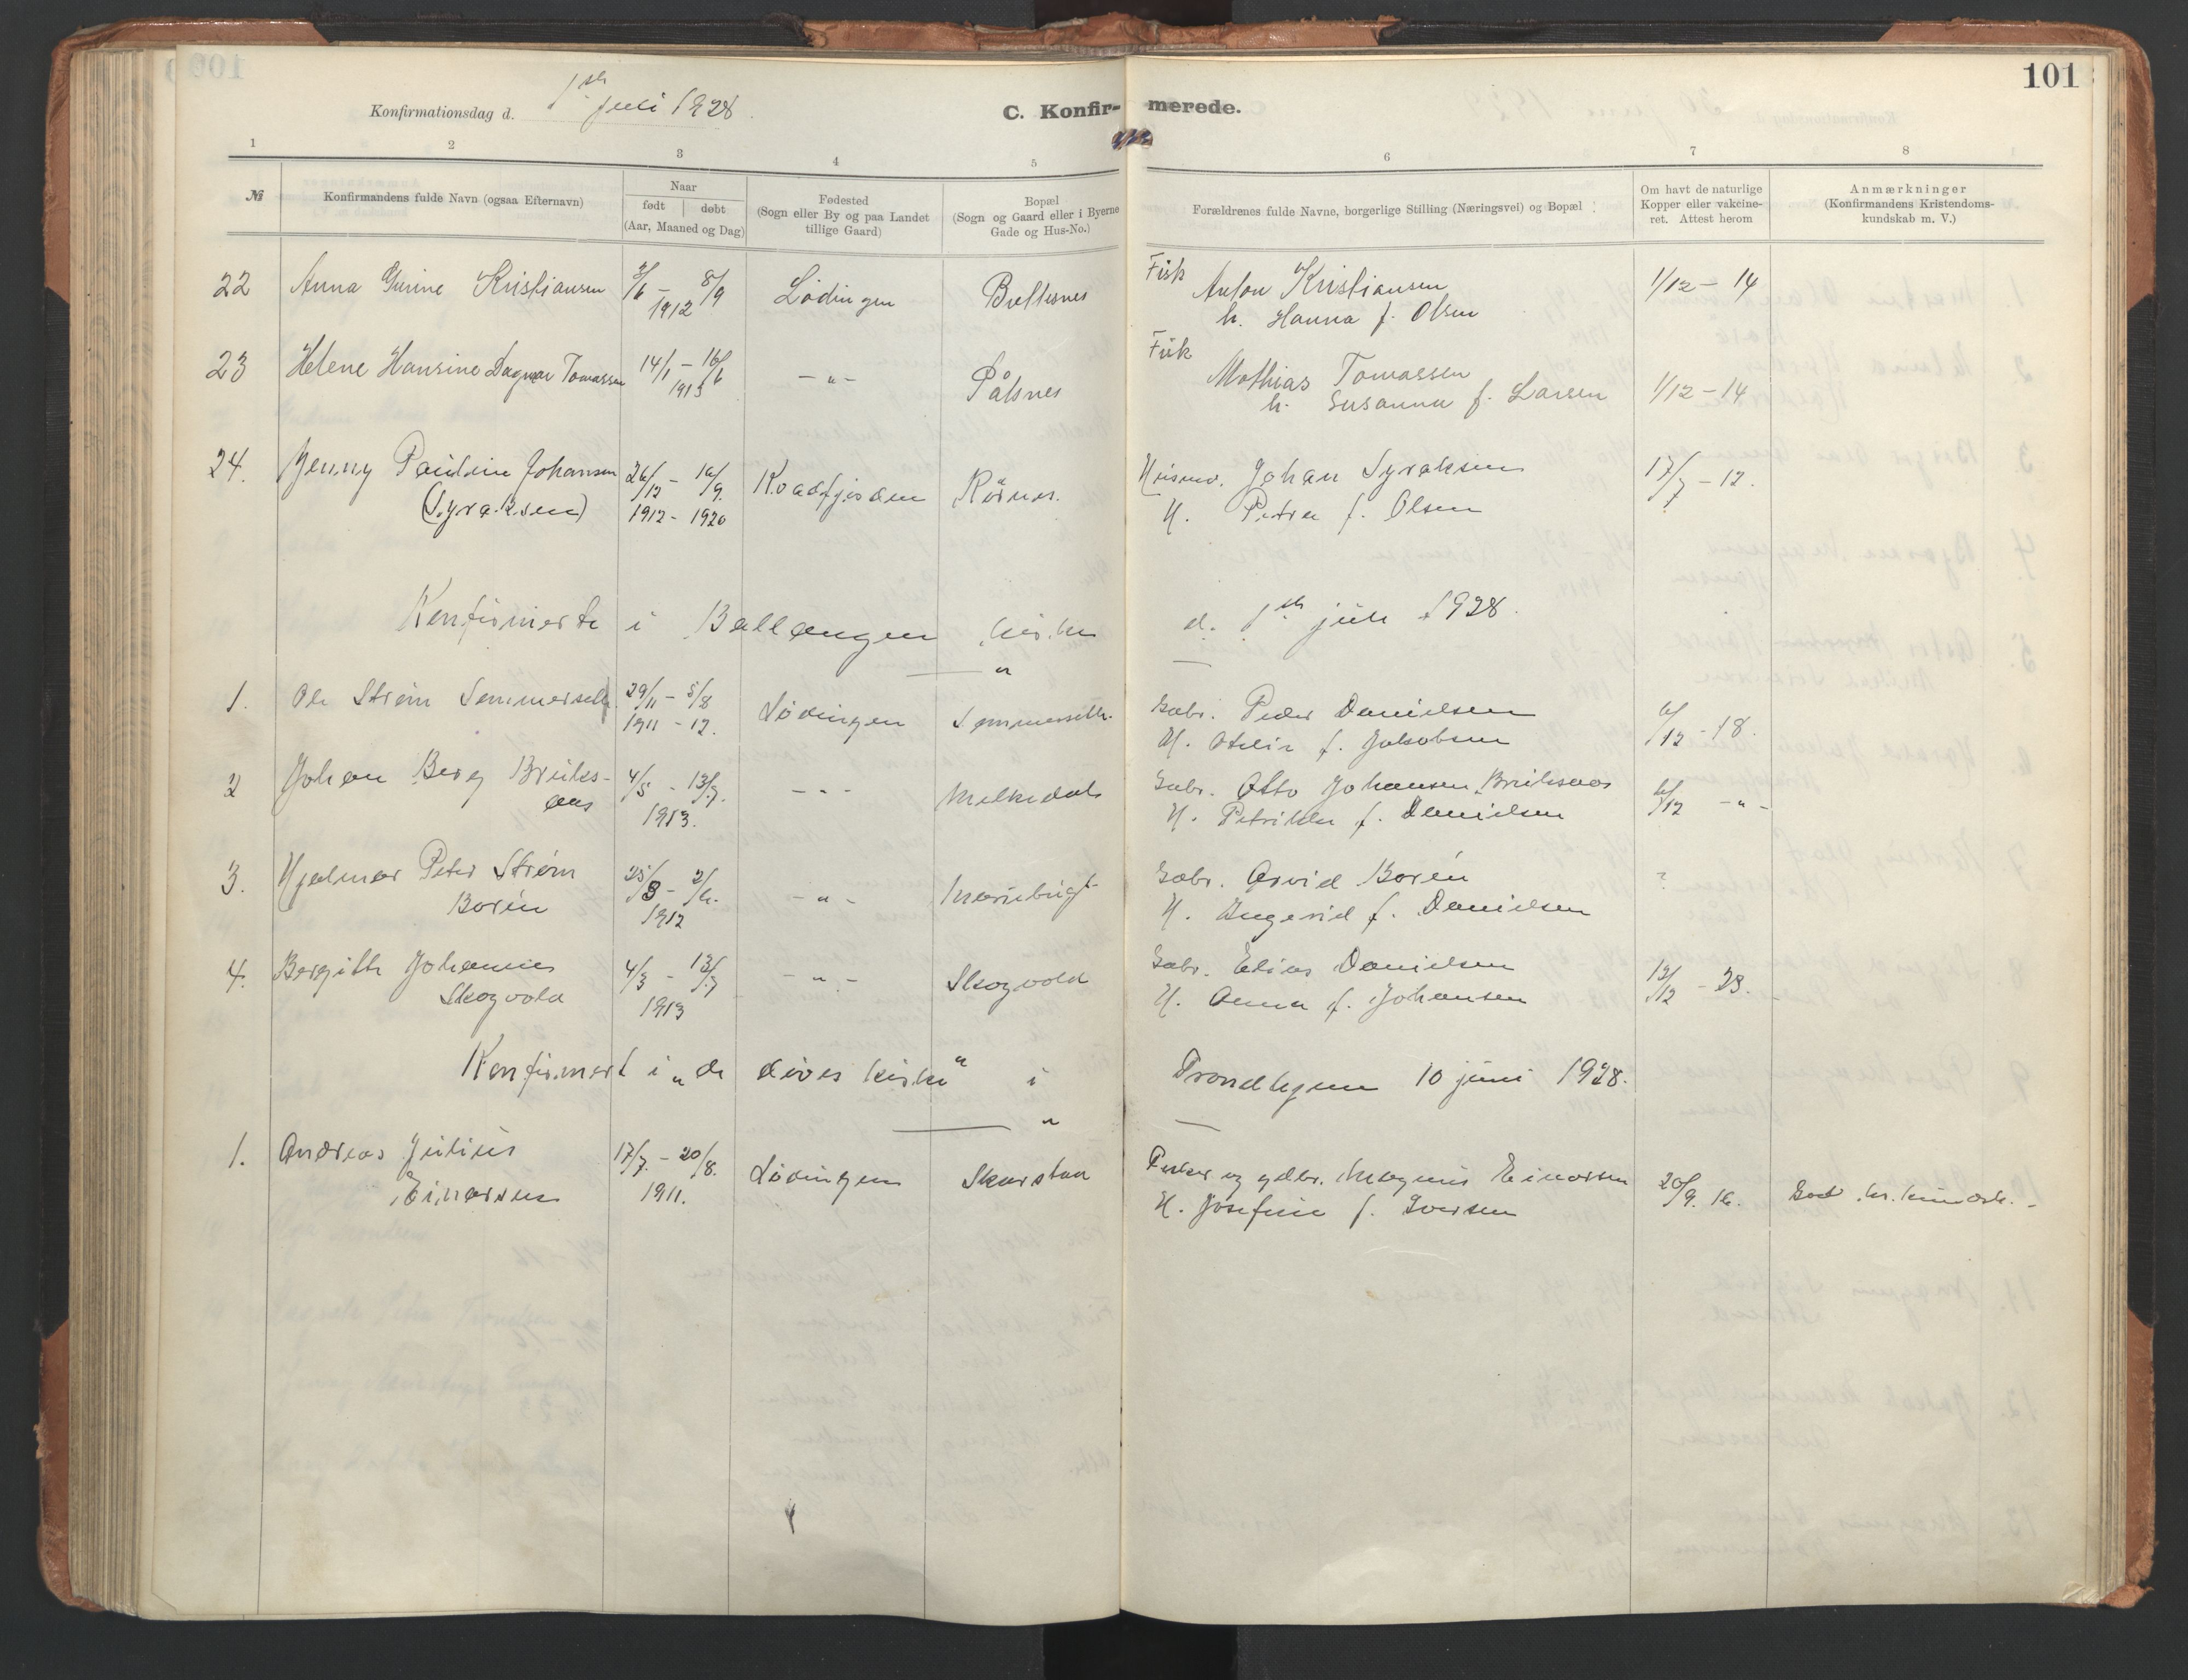 101
Konfirmationsdag d. 1ste juli 1928
C. Konfir- merede.
1 2 3 4 5 6 7 8
№
Konfirmandens fulde Navn (ogsaa Efternavn)
Naar
født døbt
(Aar, Maaned og Dag)
Fødested
(Sogn eller By og paa Landet
tillige Gaard)
Bopæl
(Sogn og Gaard eller i Byerne
Gade og Hus-No.)
Forældrenes fulde Navne, borgerlige Stilling (Næringsvei) og Bopæl
Om havt de naturlige
Kopper eller vakcine-
ret. Attest herom
Anmærkninger
(Konfirmandens Kristendoms-
kundskab m. V.)
22 Anna Kristiansen 8/9 Lødingen Fisk Anton Kristiansen 1/12 - 14
1912 h. Hanna f. Olsen
23 Helene Hansine Dagmar Tomassen 14/1 - 16/6 - " - Pålsnes Fisk Mathias Tomassen 1/12 - 14
1913 h. Susanna f. Larsen
24. Jenny Pauline Johansen 26/12 - 16/9. Johan Syraksen 17/7 - 12.
(Syraksen) 1912 - 1920 H. Petra f. Olsen
Konfirmerte i Ballangen kirke d. 1ste juli 1928.
"
1. Ole Strøm Sommerseth 29/11 - 5/8 Lødingen Sommerseth. Gbr. Peder Danielsen 6/12 - 18.
1911 - 12. H. Otelie f. Jakobsen
2 Johan Berg Bruks- 4/5 - 13/7. - " - Melkedal Gbr. Otto Johansen Bruksaas 6/12 - " -
aas 1913. H. f. Danielsen
3. Hjalmar Peter Strøm 25/3 - 2/6. - " - Gbr. Arvid Borén ?
Borén 1912 H. Ingerid f. Danielsen
4. Bergith Johannes 4/3 - 13/7 - " - Skogvold Gbr. Elias Danielsen 12/12 - 23.
Skogvold 1913 H. Anna f. Johansen
Konfirmert i „de døves kirke" i Trondhjem 10 juni 1928.
"
1. Andreas Julius 17/7. - 20/8. Lødingen Skarstad Fisker og gdbr. Magnus Einarsen 20/9. 16. God kr. kundsk. -
Einarsen 1911. H. Josefine f. Iversen